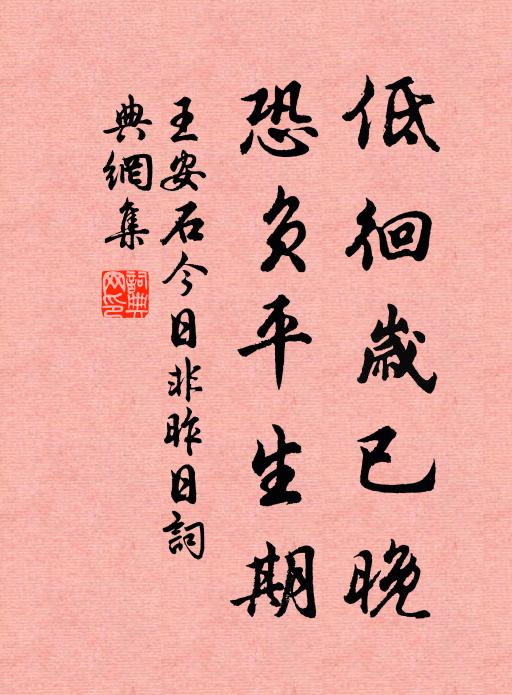 低徊歲已晚
恐負平生期
王安石今日非昨日詞
典網集
詞典網印